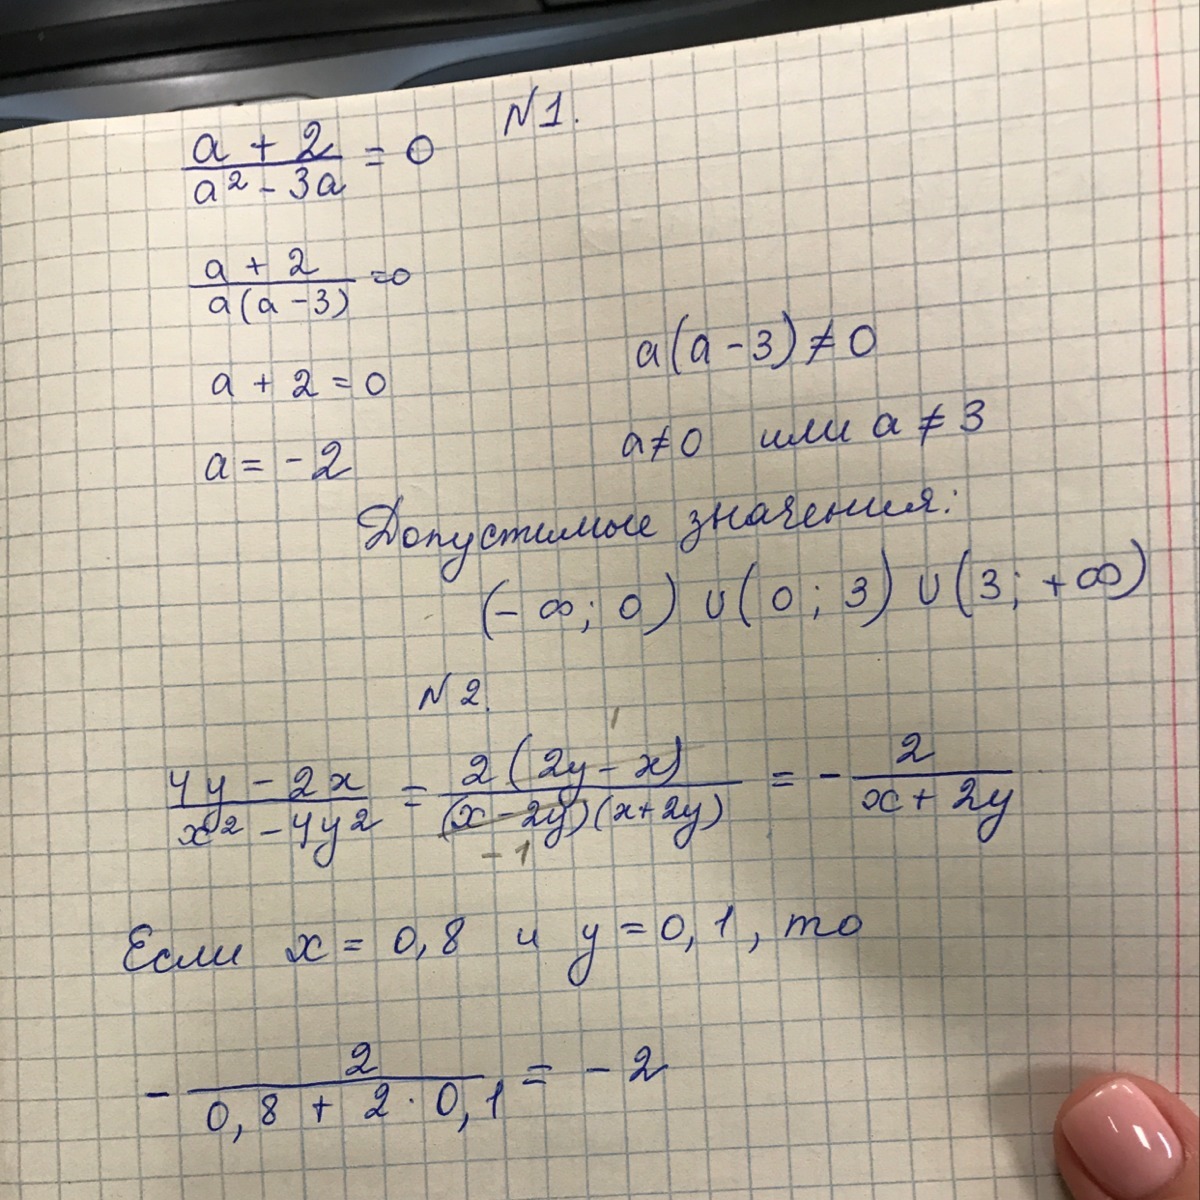 N1.
a + 2 / a² - 3a = 0
a + 2 / a(a - 3) = 0
a + 2 = 0
a(a - 3) ≠ 0
a = -2
a ≠ 0 или a ≠ 3
Допустимые значения:
(-∞; 0) ∪ (0; 3) ∪ (3; +∞)
N2.
4y - 2x / x² - 4y² = 2(2y - x) 1 / (x - 2y)(x + 2y) -1 = - 2 / x + 2y
Если x = 0,8 и y = 0,1, то
- 2 / 0,8 + 2 · 0,1 = -2